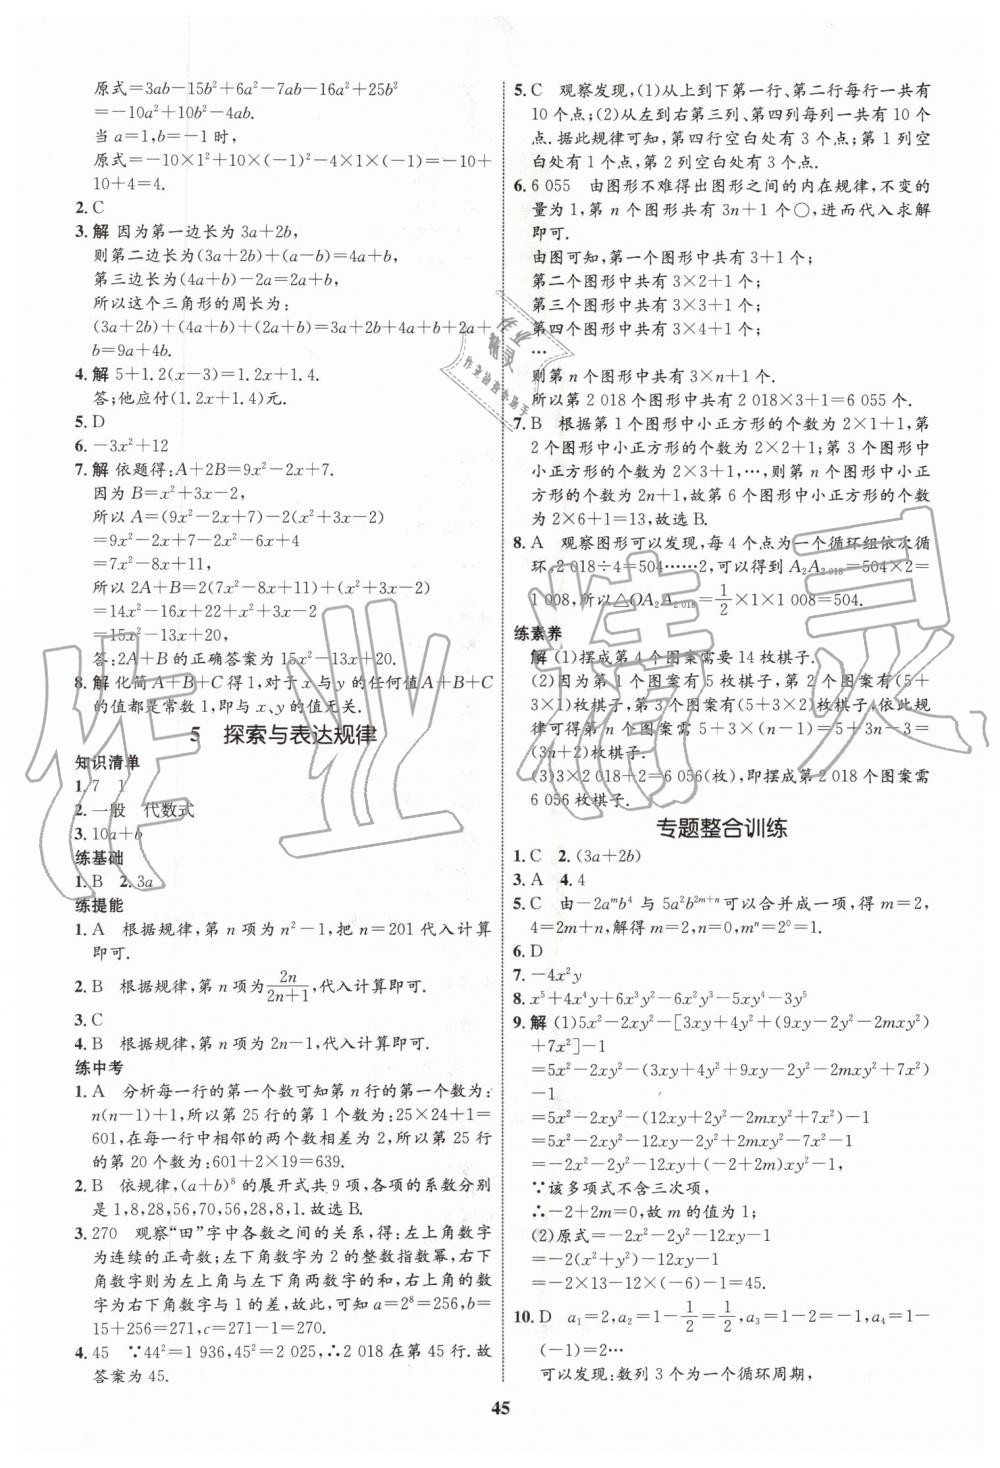 原式=3ab-15b²+6a²-7ab-16a²+25b²
=-10a²+10b²-4ab.
当 a=1,b=-1 时,
原式=-10×1²+10×(-1)²-4×1×(-1)=-10+
10+4=4.
2. C
3. 解 因为第一边长为 3a+2b,
则第二边长为(3a+2b)+(a-b)=4a+b,
第三边长为(4a+b)-2a=2a+b,
所以这个三角形的周长为:
(3a+2b)+(4a+b)+(2a+b)=3a+2b+4a+b+2a+
b=9a+4b.
4. 解 5+1.2(x-3)=1.2x+1.4.
答:他应付(1.2x+1.4)元.
5. D
6. -3x²+12
7. 解 依题得:A+2B=9x²-2x+7.
因为 B=x²+3x-2,
所以 A=(9x²-2x+7)-2(x²+3x-2)
=9x²-2x+7-2x²-6x+4
=7x²-8x+11,
所以 2A+B=2(7x²-8x+11)+(x²+3x-2)
=14x²-16x+22+x²+3x-2
=15x²-13x+20,
答:2A+B 的正确答案为 15x²-13x+20.
8. 解 化简 A+B+C 得 1,对于 x 与 y 的任何值 A+B+C
的值都是常数 1,即与 x、y 的值无关.
5 探索与表达规律
知识清单
1. 7 1
2. 一般 代数式
3. 10a+b
练基础
1. B 2. 3a
练提能
1. A 根据规律,第 n 项为 n²-1,把 n=201 代入计算
即可.
2. B 根据规律,第 n 项为2n/2n+1,代入计算即可.
3. C
4. B 根据规律,第 n 项为 2n-1,代入计算即可.
练中考
1. A 分析每一行的第一个数可知第 n 行的第一个数为:
n(n-1)+1,所以第 25 行的第 1 个数为:25×24+1=
601,在每一行中相邻的两个数相差为 2,所以第 25 行
的第 20 个数为:601+2×19=639.
2. B 依规律,(a+b)⁸ 的展开式共 9 项,各项的系数分别
是 1,8,28,56,70,56,28,8,1.故选 B.
3. 270 观察“田”字中各数之间的关系,得:左上角数字
为连续的正奇数;左下角数字为 2 的整数指数幂,右下
角数字则为左上角与左下角两数字的和,右上角的数
字为右下角数字与 1 的差,故此,可知 a=2⁸=256,b=
15+256=271,c=271-1=270.
4. 45 ∵44²=1 936,45²=2 025,∴2 018 在第 45 行.故
答案为 45.
5. C 观察发现,(1)从上到下第一行、第二行每行一共有
10 个点;(2)从左到右第三列、第四列每列一共有 10 个
点.据此规律可知,第四行空白处有 3 个点;第 1 列空
白处有 1 个点,第 2 列空白处有 3 个点.
6. 6 055 由图形不难得出图形之间的内在规律,不变的
量为 1,第 n 个图形共有 3n+1 个○,进而代入求解
即可.
由图可知,第一个图形中共有 3+1 个;
第二个图形中共有 3×2+1 个;
第三个图形中共有 3×3+1 个;
第四个图形中共有 3×4+1 个;
…
则第 n 个图形中共有 3×n+1 个.
所以第 2 018 个图形中共有 2 018×3+1=6 055 个.
7. B 根据第 1 个图形中小正方形的个数为 2×1+1,第
2 个图形中小正方形的个数为 2×2+1;第 3 个图形中
小正方形的个数为 2×3+1,…,则第 n 个图形中小正
方形的个数为 2n+1,故第 6 个图形中小正方形的个数
为 2×6+1=13,故选 B.
8. A 观察图形可以发现,每 4 个点为一个循环组依次循
环,2 018÷4=504……2,可以得到 A₂A₂ ₀₁₈=504×2=
1 008,所以△OA₂A₂ ₀₁₈=1/2×1×1 008=504.
练素养
解 (1)摆成第 4 个图案需要 14 枚棋子.
(2)因为第 1 个图案有 5 枚棋子,第 2 个图案有(5+3×
1)枚棋子,第 3 个图案有(5+3×2)枚棋子,依此规
律可得第 n 个图案需 5+3×(n-1)=5+3n-3=
(3n+2)枚棋子.
(3)3×2 018+2=6 056(枚),即摆成第 2 018 个图案需
6 056 枚棋子.
专题整合训练
1. C 2. (3a+2b)
3. A 4. 4
5. C 由-2aᵐb⁴ 与 5a²b²ᵐ⁺ⁿ 可以合并成一项,得 m=2,
4=2m+n,解得 m=2,n=0,mⁿ=2⁰=1.
6. D
7. -4x²y
8. x⁵+4x⁴y+6x³y²-6x²y³-5xy⁴-3y⁵
9. 解 (1)5x²-2xy²-[3xy+4y²+(9xy-2y²-2mxy²)
+7x²]-1
=5x²-2xy²-(3xy+4y²+9xy-2y²-2mxy²+7x²)
-1
=5x²-2xy²-(12xy+2y²-2mxy²+7x²)-1
=5x²-2xy²-12xy-2y²+2mxy²-7x²-1
=-2x²-2y²-12xy+(-2+2m)xy²-1,
∵该多项式不含三次项,
∴-2+2m=0,故 m 的值为 1;
(2)原式=-2x²-2y²-12xy-1
=-2(x²+y²)-12xy-1
=-2×13-12×(-6)-1=45.
10. D a₁=2,a₂=1-1/2=1/2,a₃=1-2=-1,a₄=1-
(-1)=2…
可以发现:数列 3 个为一个循环周期,
45
作业精灵